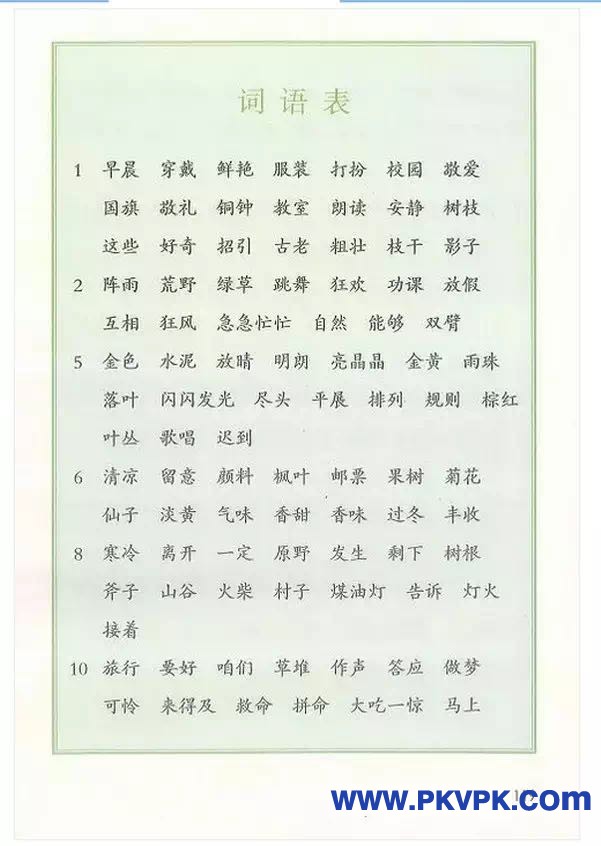 词语表
1 早晨 穿戴 鲜艳 服装 打扮 校园 敬爱
国旗 敬礼 铜钟 教室 朗读 安静 树枝
这些 好奇 招引 古老 粗壮 枝干 影子
2 阵雨 荒野 绿草 跳舞 狂欢 功课 放假
互相 狂风 急急忙忙 自然 能够 双臂
5 金色 水泥 放晴 明朗 亮晶晶 金黄 雨珠
落叶 闪闪发光 尽头 平展 排列 规则 棕红
叶丛 歌唱 迟到
6 清凉 留意 颜料 枫叶 邮票 果树 菊花
仙子 淡黄 气味 香甜 香味 过冬 丰收
8 寒冷 离开 一定 原野 发生 剩下 树根
斧子 山谷 火柴 村子 煤油灯 告诉 灯火
接着
10 旅行 要好 咱们 草堆 作声 答应 做梦
可怜 来得及 救命 拼命 大吃一惊 马上
www.PKVPK.com